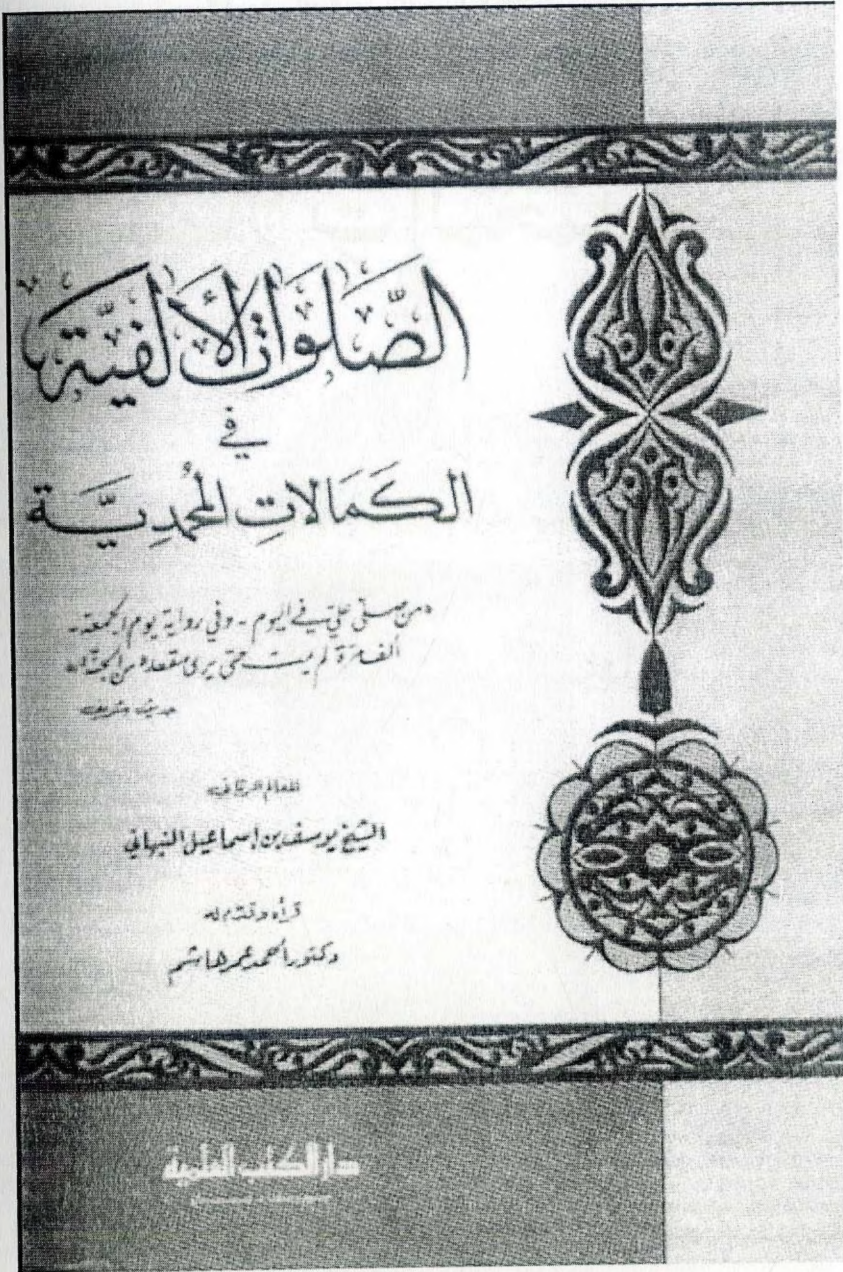 الصَّلَوَاتُ الأَلْفِيَّة
في
الكَمَالَاتِ المُحَمَّدِيَّة
«من صلى عليّ في اليوم - وفي رواية يوم الجمعة -
ألف مرة لم يمت حتى يرى مقعده من الجنة»
حديث شريف
للعالم الرباني
الشيخ يوسف بن اسماعيل النبهاني
قرأه وقدم له
دكتور أحمد عمر هاشم
دار الكتب العلمية